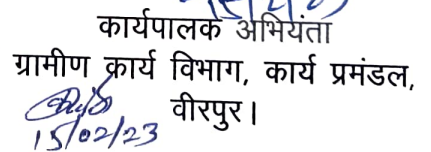 कार्यपालक अभियंता
ग्रामीण कार्य विभाग, कार्य प्रमंडल,
वीरपुर।
15/02/23